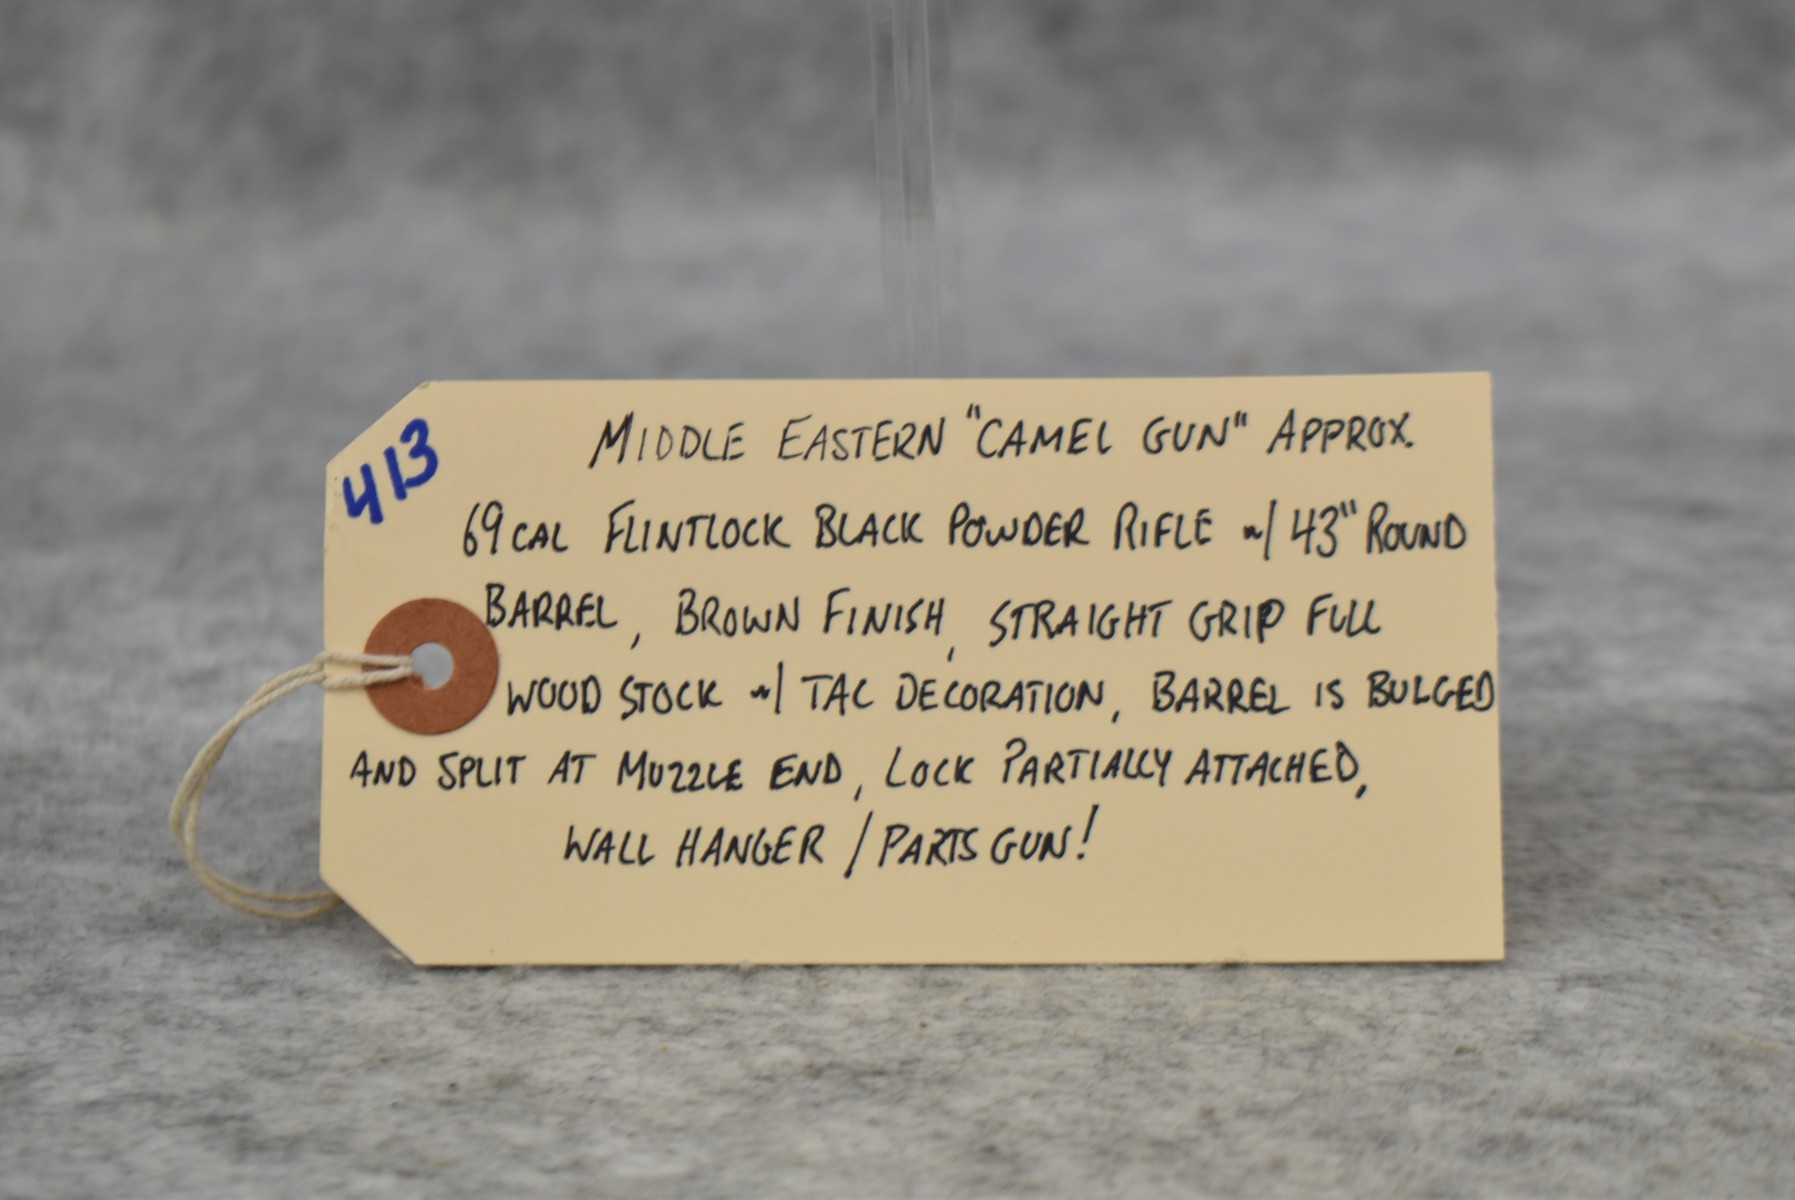 413
MIDDLE EASTERN "CAMEL GUN" APPROX.
69 CAL FLINTLOCK BLACK POWDER RIFLE w/ 43" ROUND
BARREL, BROWN FINISH, STRAIGHT GRIP FULL
WOOD STOCK w/ TAC DECORATION, BARREL IS BULGED
AND SPLIT AT MUZZLE END, LOCK PARTIALLY ATTACHED,
WALL HANGER / PARTS GUN!